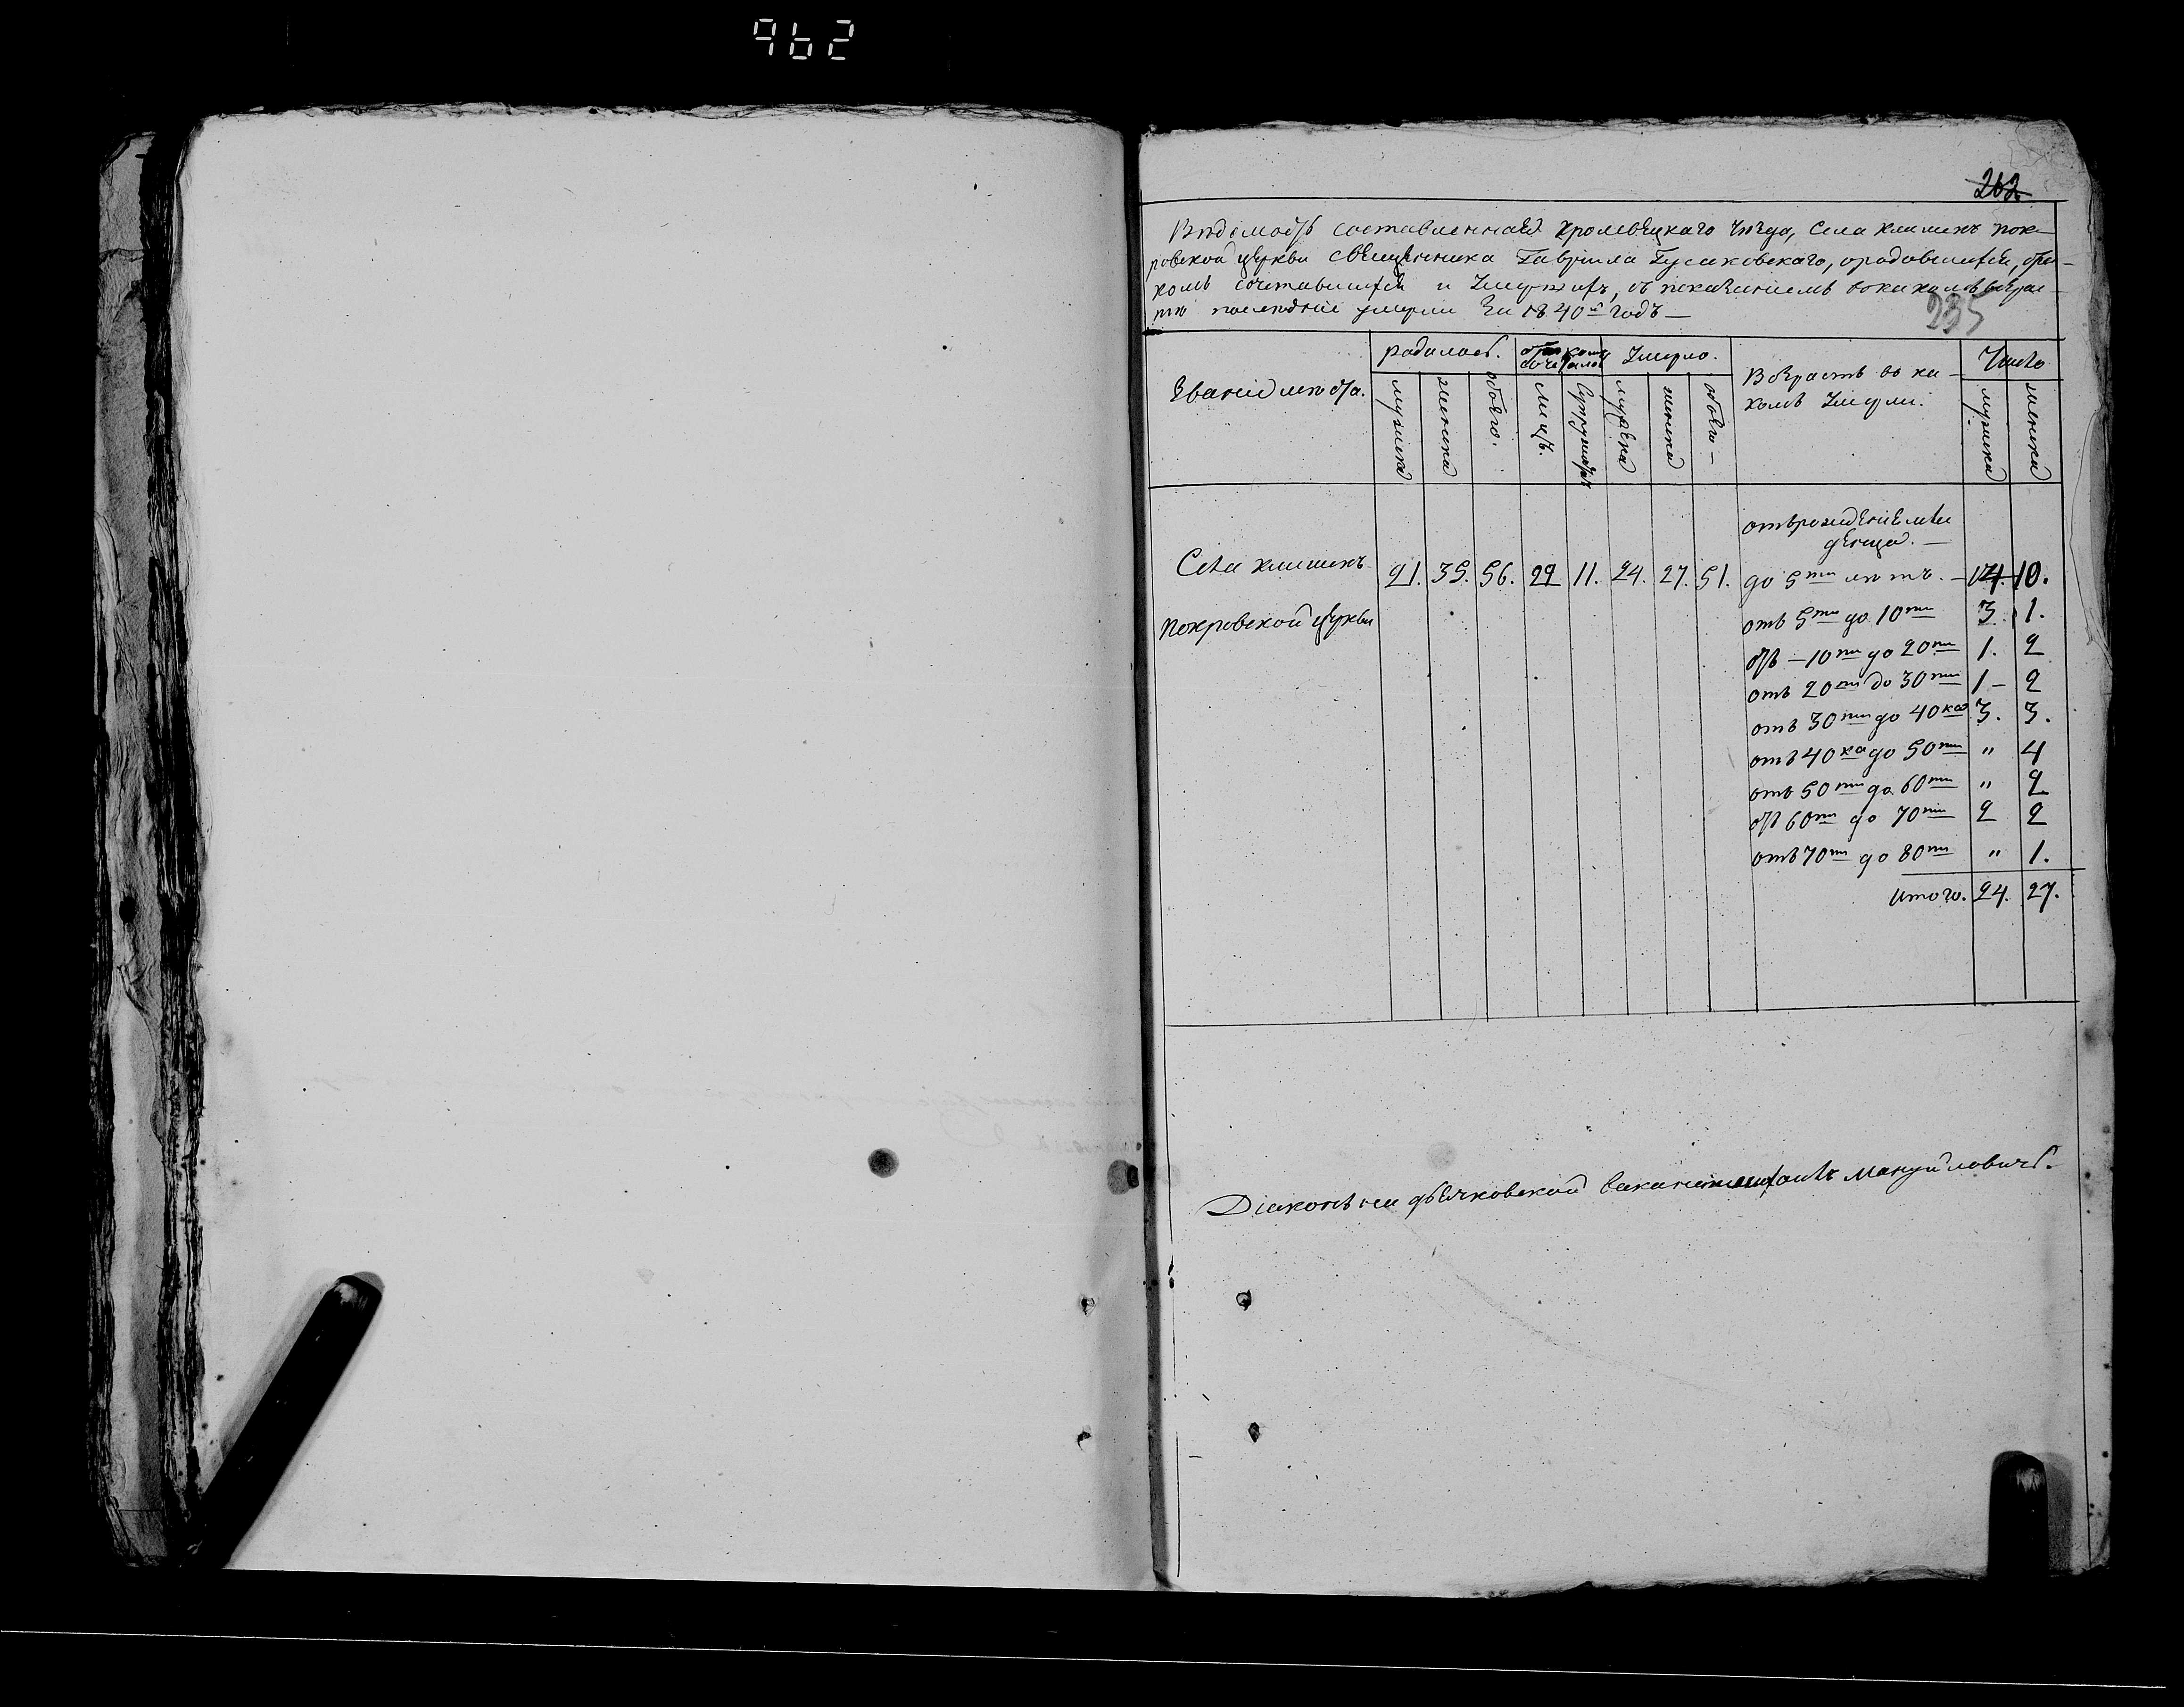 962
262
Вѣдомость составленная Кролевецкаго Уѣзда, Села Клишекъ пок-
ровской церкви священника Гавріила Гусаковскаго, о родившихся, бра-
комъ сочетавшихся и Умершихъ, съ показаніемъ во какомъ возрас-
тѣ последніе умерли За 1840й годъ —
235
Званіе мѣста.
родилось.
бракомъ сочеталось
Умерло.
Возрастъ во ка-
комъ Умерли.
Число
мужеска
женска
обоего.
лицъ.
Супружествъ
мужеска
женска
обоего —
мужеска
женска
отъ рожденія мла
денца. —
Села Клишекъ 21. 35. 56. 22 11. 24. 27. 51. до 5ти лѣтъ. — 14. 10.
Покровской церкви отъ 5ти до 10ти 3. 1.
отъ — 10ти до 20ти 1. 2
отъ 20ти до 30ти 1 — 2
отъ 30ти до 40ка 3. 3.
отъ 40ка до 50ти " 4
отъ 50ти до 60ти " 2
отъ 60ти до 70ти 2 2
отъ 70ти до 80ти " 1.
Итого. 24. 27.
Діаконъ на дьячковской Мануйловичъ.